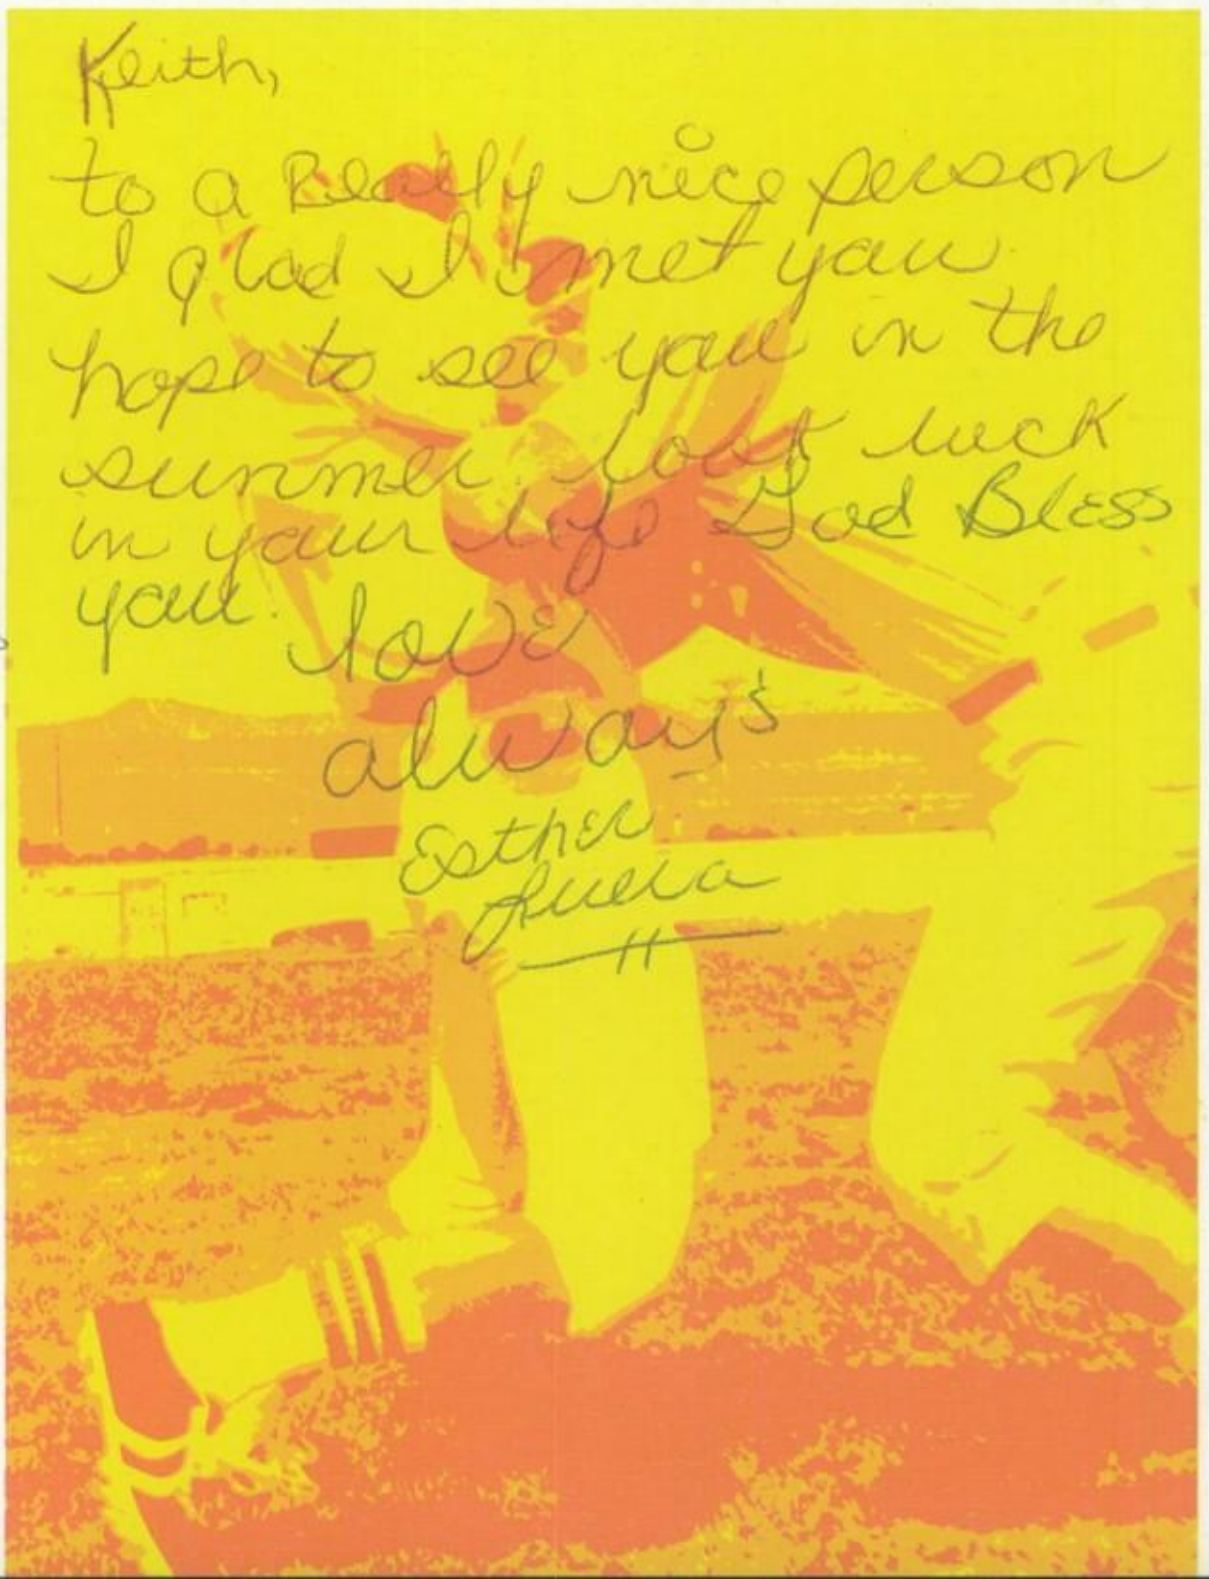 Keith,
to a Really nice person
I glad I met you
hope to see you in the
summer. luck
in your life God Bless
you. love
always
Esther